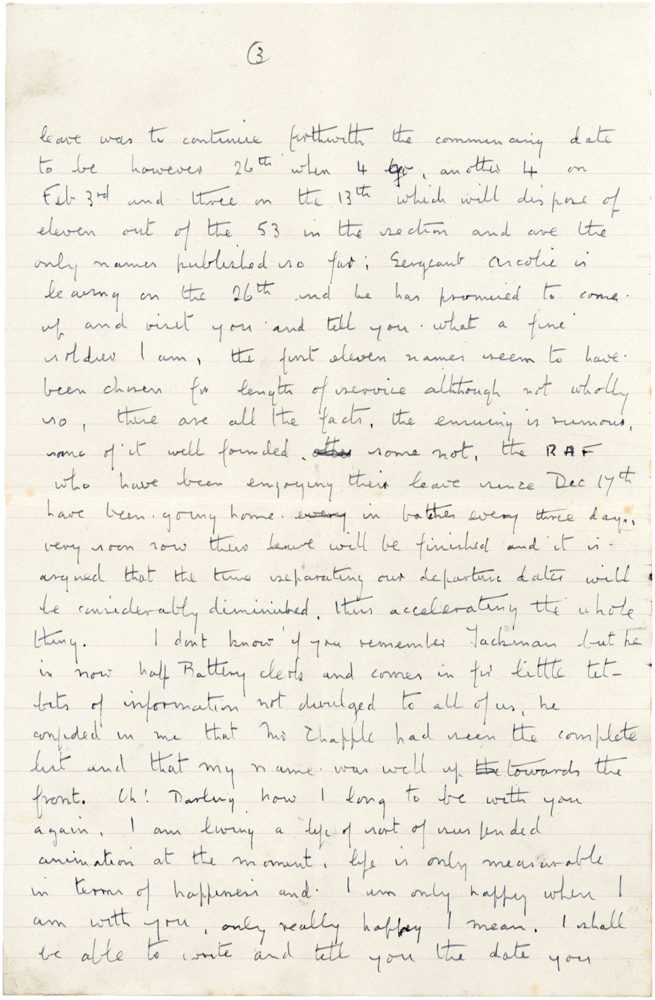 3
leave was to continue forthwith the commencing date
to be however 26th when 4 go, another 4 on
Feb 3rd and three on the 13th which will dispose of
eleven out of the 53 in the section and are the
only names published so far; Sergeant is
leaving on the 26th and he has promised to come
up and visit you and tell you what a fine
soldier I am, the first eleven names seem to have
been chosen for length of service although not wholly
so, these are all the facts, the ensuing is rumour,
some of it well founded, some not, the RAF
who have been enjoying their leave since Dec 17th
have been going home every in batches every three days,
very soon now their leave will be finished and it is
argued that the time separating our departure dates will
be considerably diminished, thus accelerating the whole
thing. I dont know if you remember Jackman but he
is now half Battery clerk and comes in for little tit-
bits of information not divulged to all of us, he
confided in me that Mr Chapple had seen the complete
list and that my name was well up the towards the
front. Oh! Darling how I long to be with you
again. I am living a life of sort of suspended
animation at the moment, life is only measurable
in terms of happiness and I am only happy when I
am with you, only really happy I mean. I shall
be able to write and tell you the date you